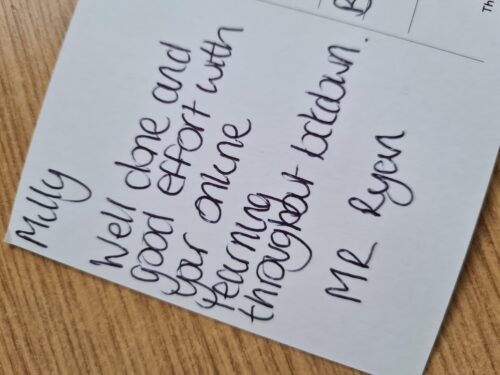 Milly
Well done and
good effort with
your online
learning
throughout lockdown.
MR Ryan
Th
B